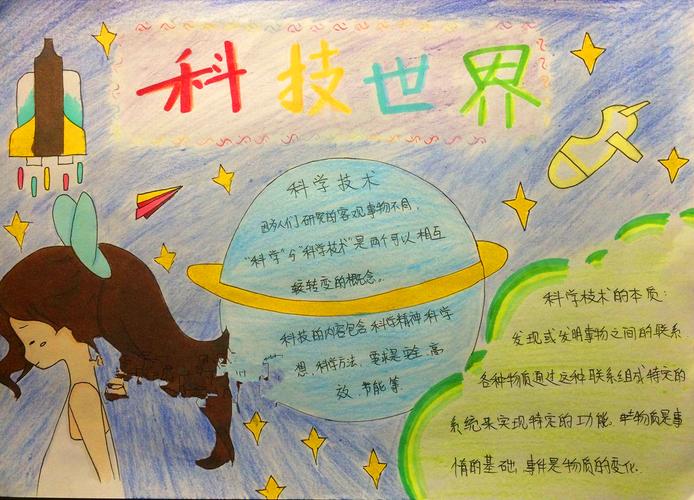 科技世界
科学技术
因为人们研究的客观事物不同,
"科学"与"科学技术"是两个可以相互
转变的概念。
科技的内容包含科学精神科学
想、科学方法, 要求是 全、高
效、节能等
科学技术的本质:
发现或发明事物之间的联系
各种物质通过这种联系组成特定的
系统来实现特定的功能, 物质是事
情的基础, 事件是物质的变化.